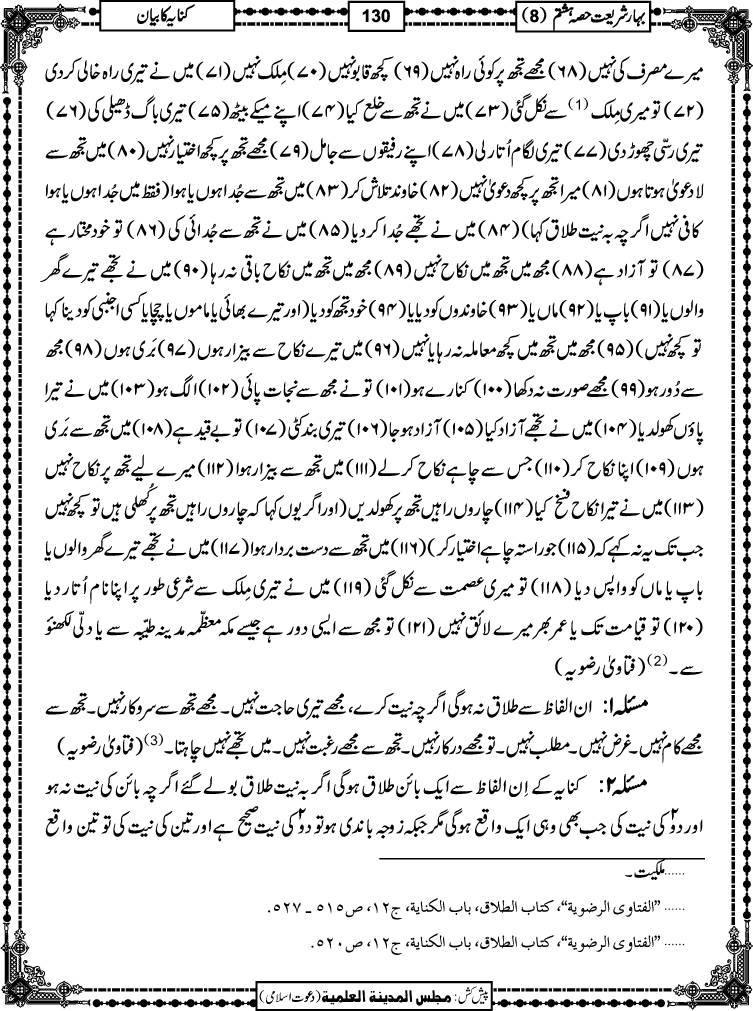 بہارِ شریعت حصہ ہشتم (8)
130
کنایہ کا بیان
میرے مصرف کی نہیں (۶۸) مجھے تجھ پر کوئی راہ نہیں (۶۹) کچھ قابو نہیں (۷۰) مِلک نہیں (۷۱) میں نے تیری راہ خالی کر دی
(۷۲) تو میری مِلک (1) سے نکل گئی (۷۳) میں نے تجھ سے خلع کیا (۷۴) اپنے میکے بیٹھ (۷۵) تیری باگ ڈھیلی کی (۷۶)
تیری رسّی چھوڑ دی (۷۷) تیری لگام اُتار لی (۷۸) اپنے رفیقوں سے جا مل (۷۹) مجھے تجھ پر کچھ اختیار نہیں (۸۰) میں تجھ سے
لا دعویٰ ہوتا ہوں (۸۱) میرا تجھ پر کچھ دعویٰ نہیں (۸۲) خاوند تلاش کر (۸۳) میں تجھ سے جُدا ہوں یا ہوا (فقط میں جُدا ہوں یا ہوا
کافی نہیں اگرچہ بہ نیت طلاق کہا) (۸۴) میں نے تجھے جُدا کر دیا (۸۵) میں نے تجھ سے جُدائی کی (۸۶) تو خود مختار ہے
(۸۷) تو آزاد ہے (۸۸) مجھ میں تجھ میں نکاح نہیں (۸۹) مجھ میں تجھ میں نکاح باقی نہ رہا (۹۰) میں نے تجھے تیرے گھر
والوں یا (۹۱) باپ یا (۹۲) ماں یا (۹۳) خاوندوں کو دیا یا (۹۴) خود تجھ کو دیا (اور تیرے بھائی یا ماموں یا چچا یا کسی اجنبی کو دینا کہا
تو کچھ نہیں) (۹۵) مجھ میں تجھ میں کچھ معاملہ نہ رہا یا نہیں (۹۶) میں تیرے نکاح سے بیزار ہوں (۹۷) بَری ہوں (۹۸) مجھ
سے دُور ہو (۹۹) مجھے صورت نہ دکھا (۱۰۰) کنارے ہو (۱۰۱) تو نے مجھ سے نجات پائی (۱۰۲) الگ ہو (۱۰۳) میں نے تیرا
پاؤں کھولدیا (۱۰۴) میں نے تجھے آزاد کیا (۱۰۵) آزاد ہو جا (۱۰۶) تیری بند کٹی (۱۰۷) تو بے قید ہے (۱۰۸) میں تجھ سے بَری
ہوں (۱۰۹) اپنا نکاح کر (۱۱۰) جس سے چاہے نکاح کرلے (۱۱۱) میں تجھ سے بیزار ہوا (۱۱۲) میرے لیے تجھ پر نکاح نہیں
(۱۱۳) میں نے تیرا نکاح فسخ کیا (۱۱۴) چاروں راہیں تجھ پر کھولدیں (اور اگر یوں کہا کہ چاروں راہیں تجھ پر کُھلی ہیں تو کچھ نہیں
جب تک یہ نہ کہے کہ (۱۱۵) جو راستہ چاہے اختیار کر) (۱۱۶) میں تجھ سے دست بردار ہوا (۱۱۷) میں نے تجھے تیرے گھر والوں یا
باپ یا ماں کو واپس دیا (۱۱۸) تو میری عصمت سے نکل گئی (۱۱۹) میں نے تیری مِلک سے شرعی طور پر اپنا نام اُتار دیا
(۱۲۰) تو قیامت تک یا عمر بھر میرے لائق نہیں (۱۲۱) تو مجھ سے ایسی دور ہے جیسے مکہ معظّمہ مدینہ طیّبہ سے یا دلّی لکھنؤ
سے۔ (2) (فتاویٰ رضویہ)
مسئلہ ۱: ان الفاظ سے طلاق نہ ہوگی اگرچہ نیت کرے، مجھے تیری حاجت نہیں۔ مجھے تجھ سے سروکار نہیں۔ تجھ سے
مجھے کام نہیں۔ غرض نہیں۔ مطلب نہیں۔ تو مجھے درکار نہیں۔ تجھ سے مجھے رغبت نہیں۔ میں تجھے نہیں چاہتا۔ (3) (فتاویٰ رضویہ)
مسئلہ ۲: کنایہ کے اِن الفاظ سے ایک بائن طلاق ہوگی اگر بہ نیت طلاق بولے گئے اگرچہ بائن کی نیت نہ ہو
اور دو۲ کی نیت کی جب بھی وہی ایک واقع ہوگی مگر جبکہ زوجہ باندی ہو تو دو۲ کی نیت صحیح ہے اور تین کی نیت کی تو تین واقع
......ملکیت۔
...... ”الفتاوى الرضوية“، كتاب الطلاق، باب الكناية، ج۱۲، ص۵۱۵ ـ ۵۲۷.
...... ”الفتاوى الرضوية“، كتاب الطلاق، باب الكناية، ج۱۲، ص۵۲۰.
پیش کش: مجلس المدينة العلمية (دعوت اسلامی)